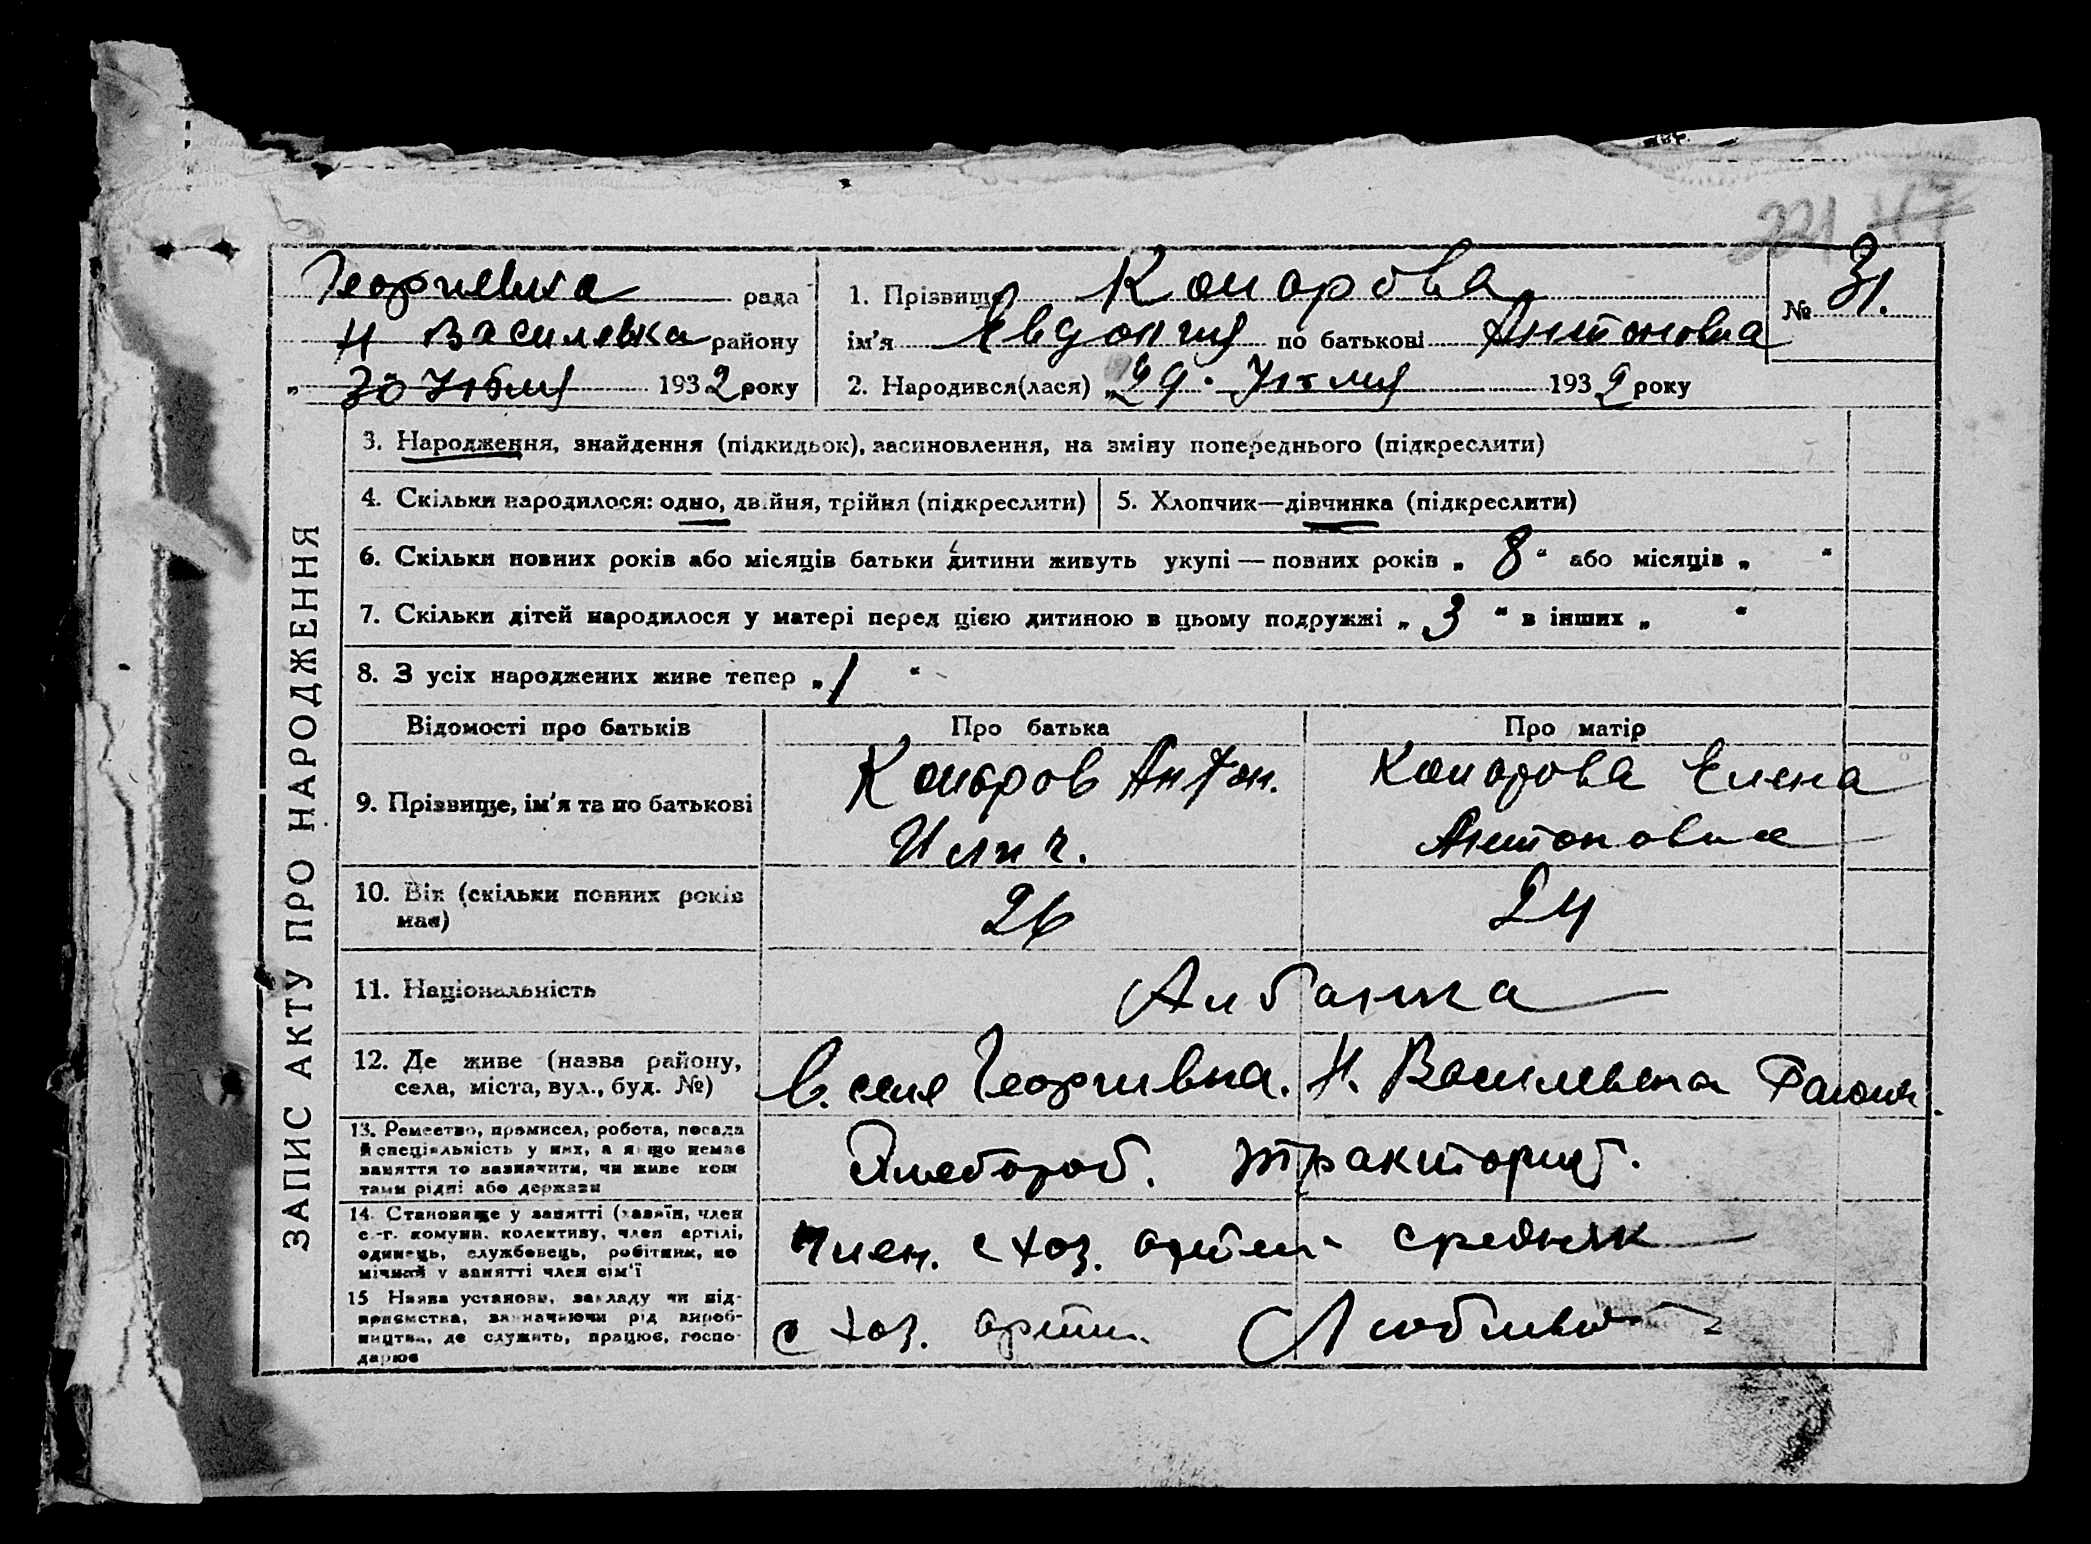 221 47
Георгиевка рада
Н Василевка району
„ 30 Июля 1932 року
1. Прізвище Конарова
ім'я Евдокия по батькові Антоновна
2. Народився(лася) „29. Июля 1932 року
№ 31.
ЗАПИС АКТУ ПРО НАРОДЖЕННЯ
3. Народження, знайдення (підкидьок), засиновлення, на зміну попереднього (підкреслити)
4. Скільки народилося: одно, двійня, трійня (підкреслити)
5. Хлопчик—дівчинка (підкреслити)
6. Скільки повних років або місяців батьки дитини живуть укупі — повних років „ 8 “ або місяців „ “
7. Скільки дітей народилося у матері перед цією дитиною в цьому подружжі „ 3 “ в інших „ “
8. З усіх народжених живе тепер „ 1 “
Відомості про батьків Про батька Про матір
9. Прізвище, ім'я та по батькові
Конаров Антон.
Илич.
Конарова Елена
Антоновна
10. Вік (скільки повних років
має)
26
24
11. Національність
Албанка
12. Де живе (назва району,
села, міста, вул., буд. №)
в. селе Георгивка. Н. Василевка Район.
13. Ремество, промисел, робота, посада
й спеціяльність у них, а якщо немає
заняття то зазначити, чи живе кош
тами рідні або держави
Хлебороб. тракторист.
14. Становище у занятті (хазяїн, член
с.-г. комуни, колективу, член артілі,
одинець, службовець, робітник, по
мічний у занятті член сім'ї
Член. с хоз. артели средняк
15 Назва установи, закладу чи під-
приємства, зазначаючи рід вироб-
ництва, де служить, працює, госпо-
дарює
с хоз. арти.